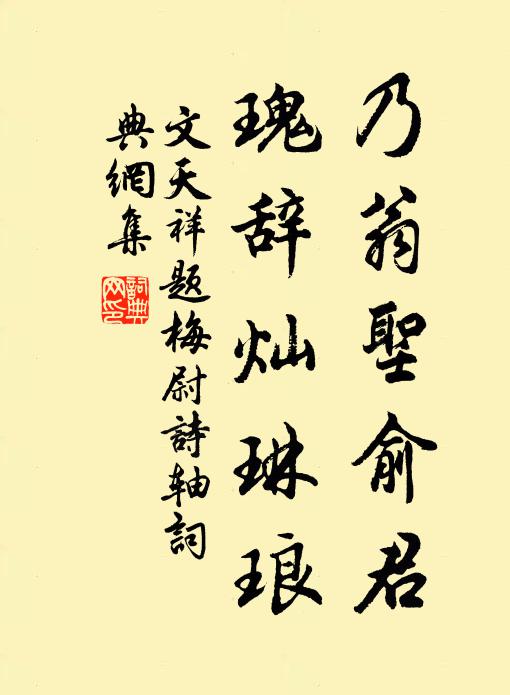 乃翁聖俞君
瑰辞灿琳琅
文天祥题梅尉詩轴詞
典網集
詞典
网印